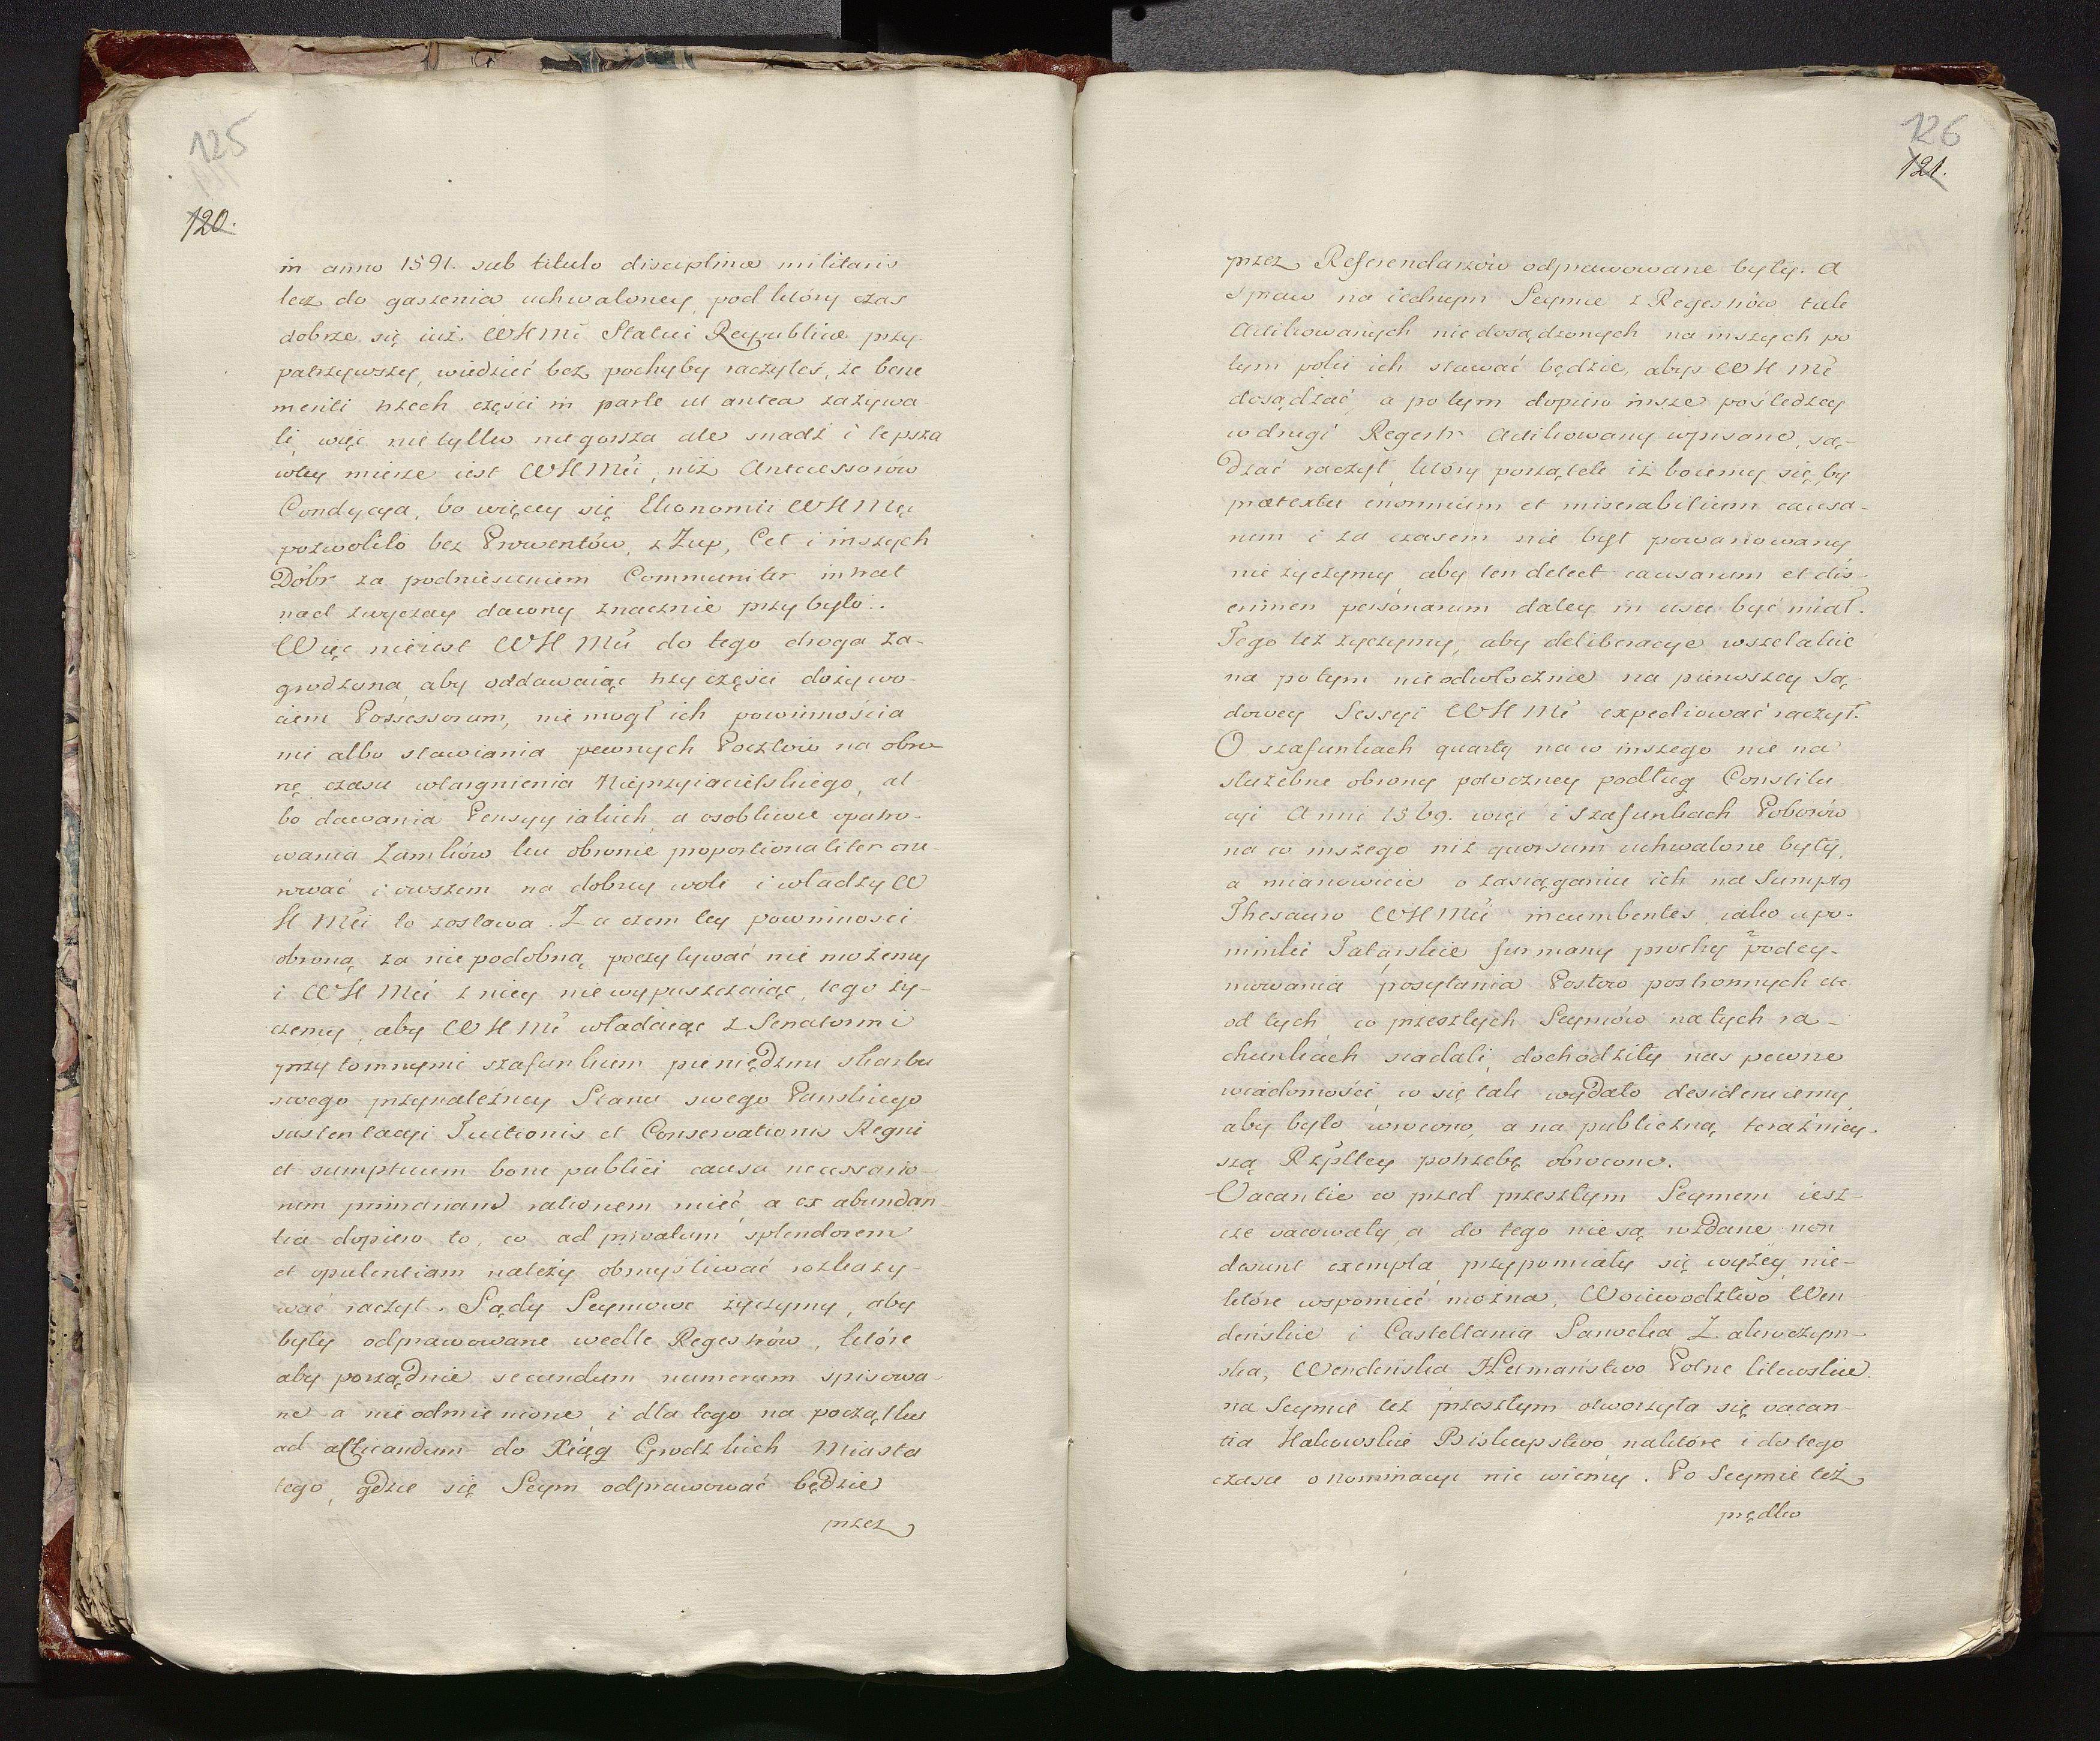 125
120.
in anno 1591. sub titulo disciplina militaris
lecz do gaszenia uchwaloney, pod który czas
dobrze się iuż WKMć Statui Reypublicæ przy-
patrzywszy, wiedzieć bez pochyby raczyłeś, że bene
meriti trzech części in parte ut antea zażywa
li, więc nie tylko niegorsza ale snadź i lepsza
wtey mierze iest WKMći, niż Antecessorów
Condycya, bo więcey się Ekonomii WKMći
pozwoliło bez Prowentów, z Żup, Ceł i inszych
Dóbr za podniesieniem Communiter intrat
nad zwyczay dawny znacznie przybyło..
Więc nieiest WKMći do tego droga za-
grodzona, aby oddawaiąc trzy części dożywo-
ciem Possessorum, nie mogł ich powinnościa
mi albo stawiania pewnych Pocztów na obro
nę czasu wtargnienia Nieprzyiacielskiego, al-
bo dawania Pensyy iakich, a osobliwie opatro-
wania Zamków ku obronie proportionaliter one-
rować i owszem na dobrey woli i władzy W
K Mći to zostawa. Za czem tey powinności
obroną za nie podobną poczytywać nie możemy
i WKMći z niey nie wypuszczaiąc, tego ży-
czemy, aby WKMć władaiąc z Senatormi
przytomnymi szafunkiem pieniędzmi skarbu
swego przynależney Stanu swego Pańskiego
sustentacyi Tuitionis et Conservationis Regni
et sumptuum boni publici causa necessario-
rum primariam rationem mieć, a ex abundan-
tia dopiero to, co ad privatum splendorem
et opulentiam należy obmyśliwać rozkazy-
wać raczył. Sądy Seymowe życzymy, aby
były odprawowane wedle Regestrów, które
aby porządnie secundum numerum spisowa
ne a nieodmienione, i dla tego na początku
ad afficandum do Xiąg Grodzkich Miasta
tego, gdzie się Seym odprawować będzie
przez
126
121.
przez Referendarzów odprawowane były. A
spraw na iednym Seymie z Regestrów tak
Actikowanych niedosądzonych na inszych po
tym poki ich stawać będzie, abyś WKMć
dosądzać, a potym dopiero insze pośledzey
w drugi Regestr Actikowany wpisane, są-
dzać raczył, który porządek iż boiemy się, by
prætextu enormium et miserabilium causa-
rum i za czasem nie był powariowany
nie życzymy, aby ten delect causarum et dis-
crimen personarum daley in usu być miał.
Tego też życzymy, aby deliberacye wszelakie
na potym nieodwłocznie na pierwszey Są-
dowey Sessyi WKMć expediować raczył.
O szafunkach quarty na co inszego nie na
służebne obrony potoczney podług Constitu
cyi Anni 1569. więc i szafunkach Poborów
na co inszego niż quorsum uchwalone były,
a mianowicie o zasiąganiu ich na Sumpty
Thesauro WKMći incumbentes, iako upo-
minki Tatarskie furmany prochy podey-
mowania, posyłania Posłów postronnych etc.
od tych co przeszłych Seymów na tych ra-
chunkach siadali, dochodziły nas pewne
wiadomości, co się tak wydało desideruiemy,
aby było wrócono, a na publiczną teraźniey-
szą Rzpltey potrzebę obrócono.
Vacantie co przed przeszłym Seymem iesz-
cze vacowały, a do tego nie są rozdane, non
desunt exempla, przypomiały się wyżey nie-
które wspomieć można, Woiewodztwo Wen-
deńskie i Castellania Sanocka Zakroczym-
ska, Wendeńska Hetmaństwo Polne litewskie.
na Seymie też przeszłym otworzyła się vacan-
tia Krakowskie Biskupstwo, naktóre i do tego
czasu o nominacyi nie wiemy. Po Seymie też
prędko